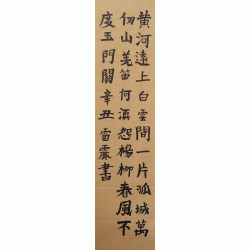 黄河遠上白雲間一片孤城萬
仞山羌笛何湏怨楊柳春風不
度玉門關辛丑雷霖書